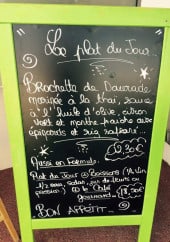 Le plat du Jour
Brochette de Daurade
marinée à la thaï, sauce
à l'huile d'olive, citron
vert et menthe fraîche avec
épinards et riz safrané...
Aussi en Formule
Plat du Jour Boisson
ou
pression) Café
Gourmand
BON APPETIT...